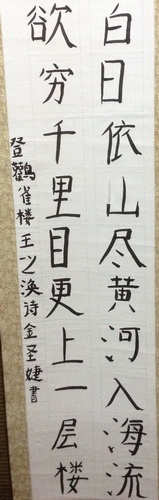 白日依山尽黄河入海流
欲穷千里目更上一层楼
登鸛雀楼王之涣诗金圣婕書